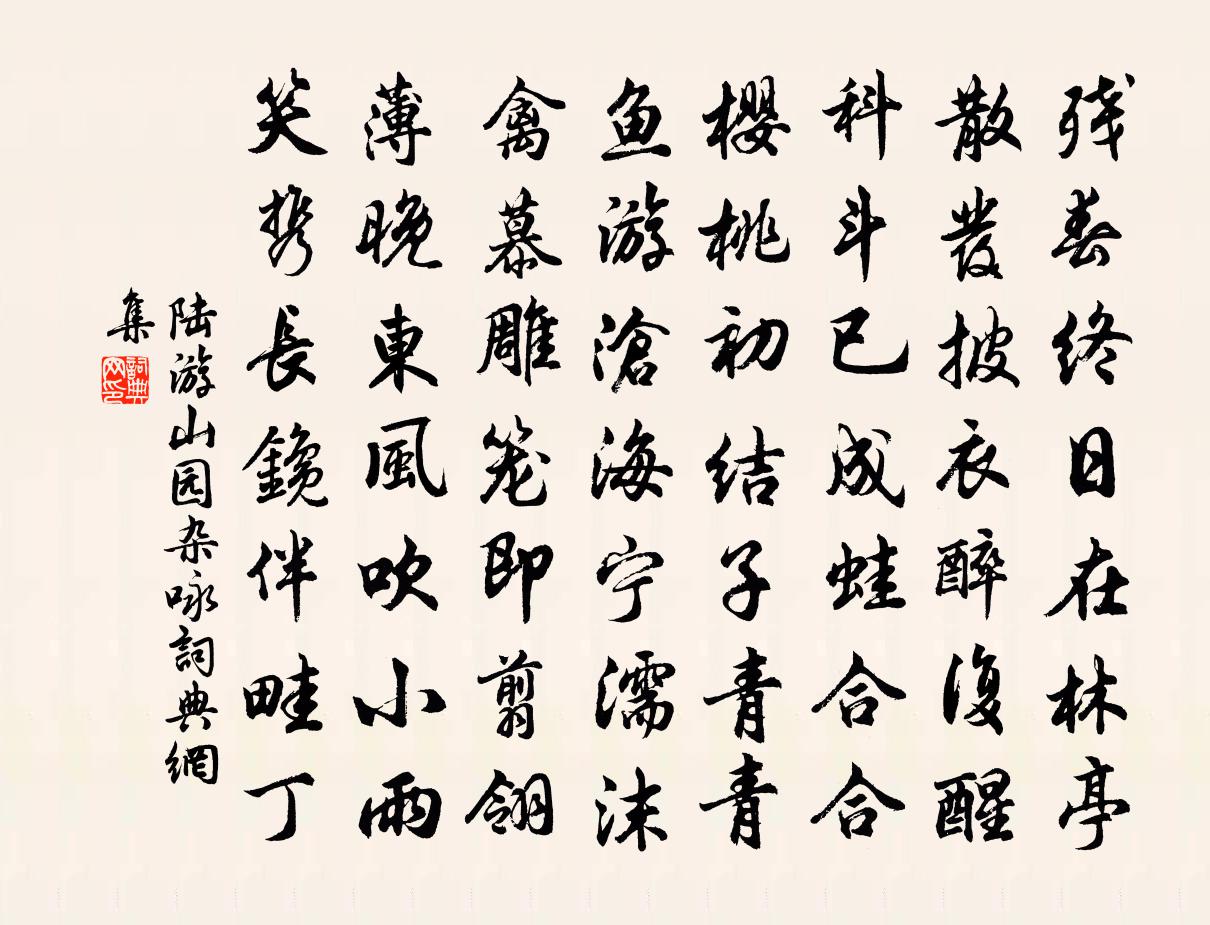 残春终日在林亭
散發披衣醉復醒
科斗已成蛙合合
櫻桃初结子青青
鱼游滄海宁濡沫
禽慕雕笼即翦翎
薄晚東風吹小雨
笑携長鑱伴畦丁
陆游山园杂咏詞典網
集
詞典
网印